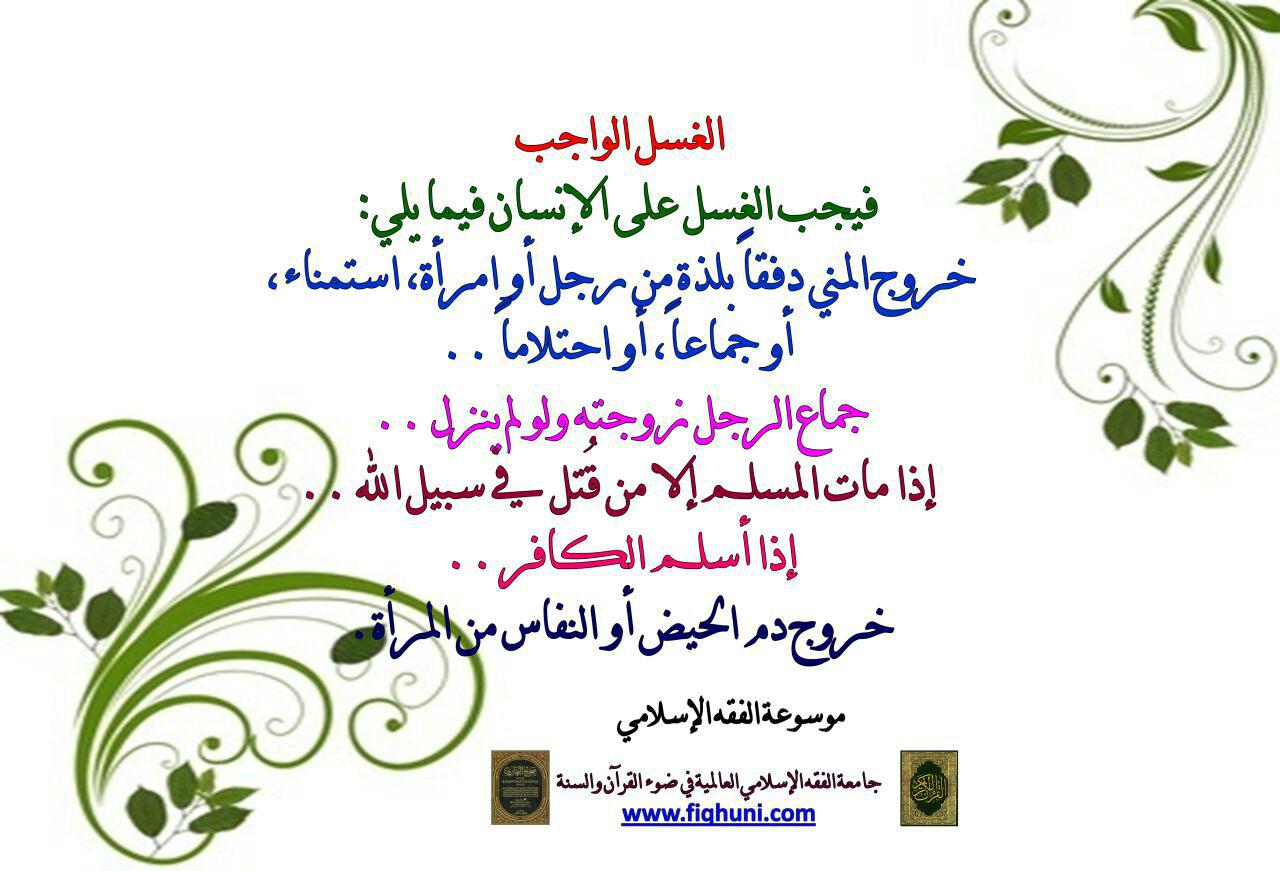 الغسل الواجب
فيجب الغسل على الإنسان فيما يلي:
خروج المني دفقاً بلذة من رجل أو امرأة، استمناء،
أو جماعاً، أو احتلاماً . .
جماع الرجل زوجته ولو لم ينزل . .
إذا مات المسلم إلا من قُتل في سبيل الله . .
إذا أسلم الكافر . .
خروج دم الحيض أو النفاس من المرأة.
موسوعة الفقه الإسلامي
جامعة الفقه الإسلامي العالمية في ضوء القرآن والسنة
www.fiqhuni.com